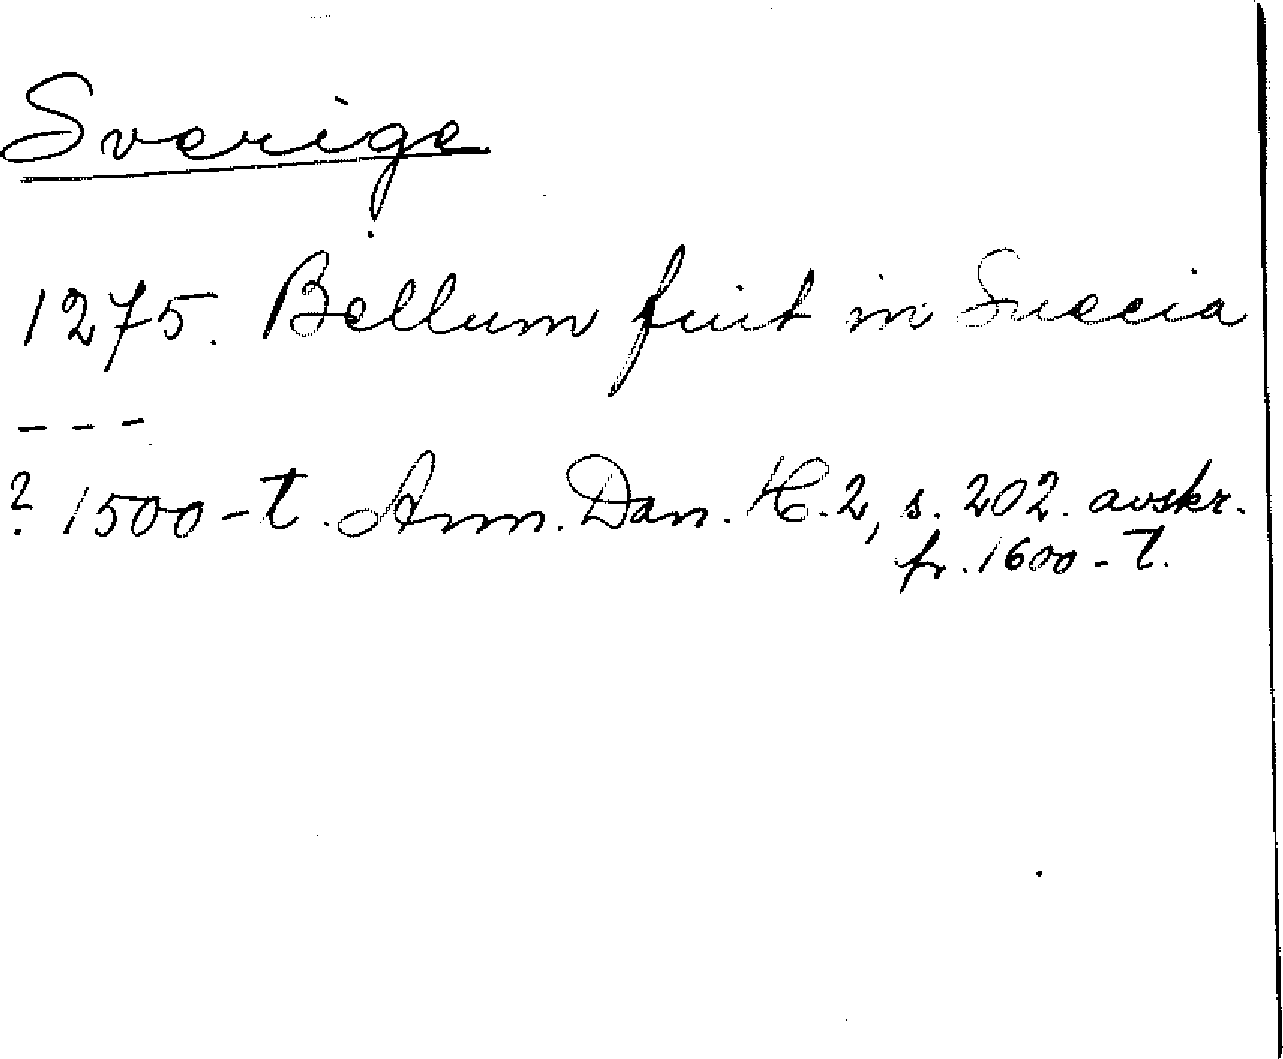 Sverige
1275. Bellum fuit in Suecia
---
? 1500-t. Ann. Dan. H. 2, s. 202. avskr.
fr. 1600-t.